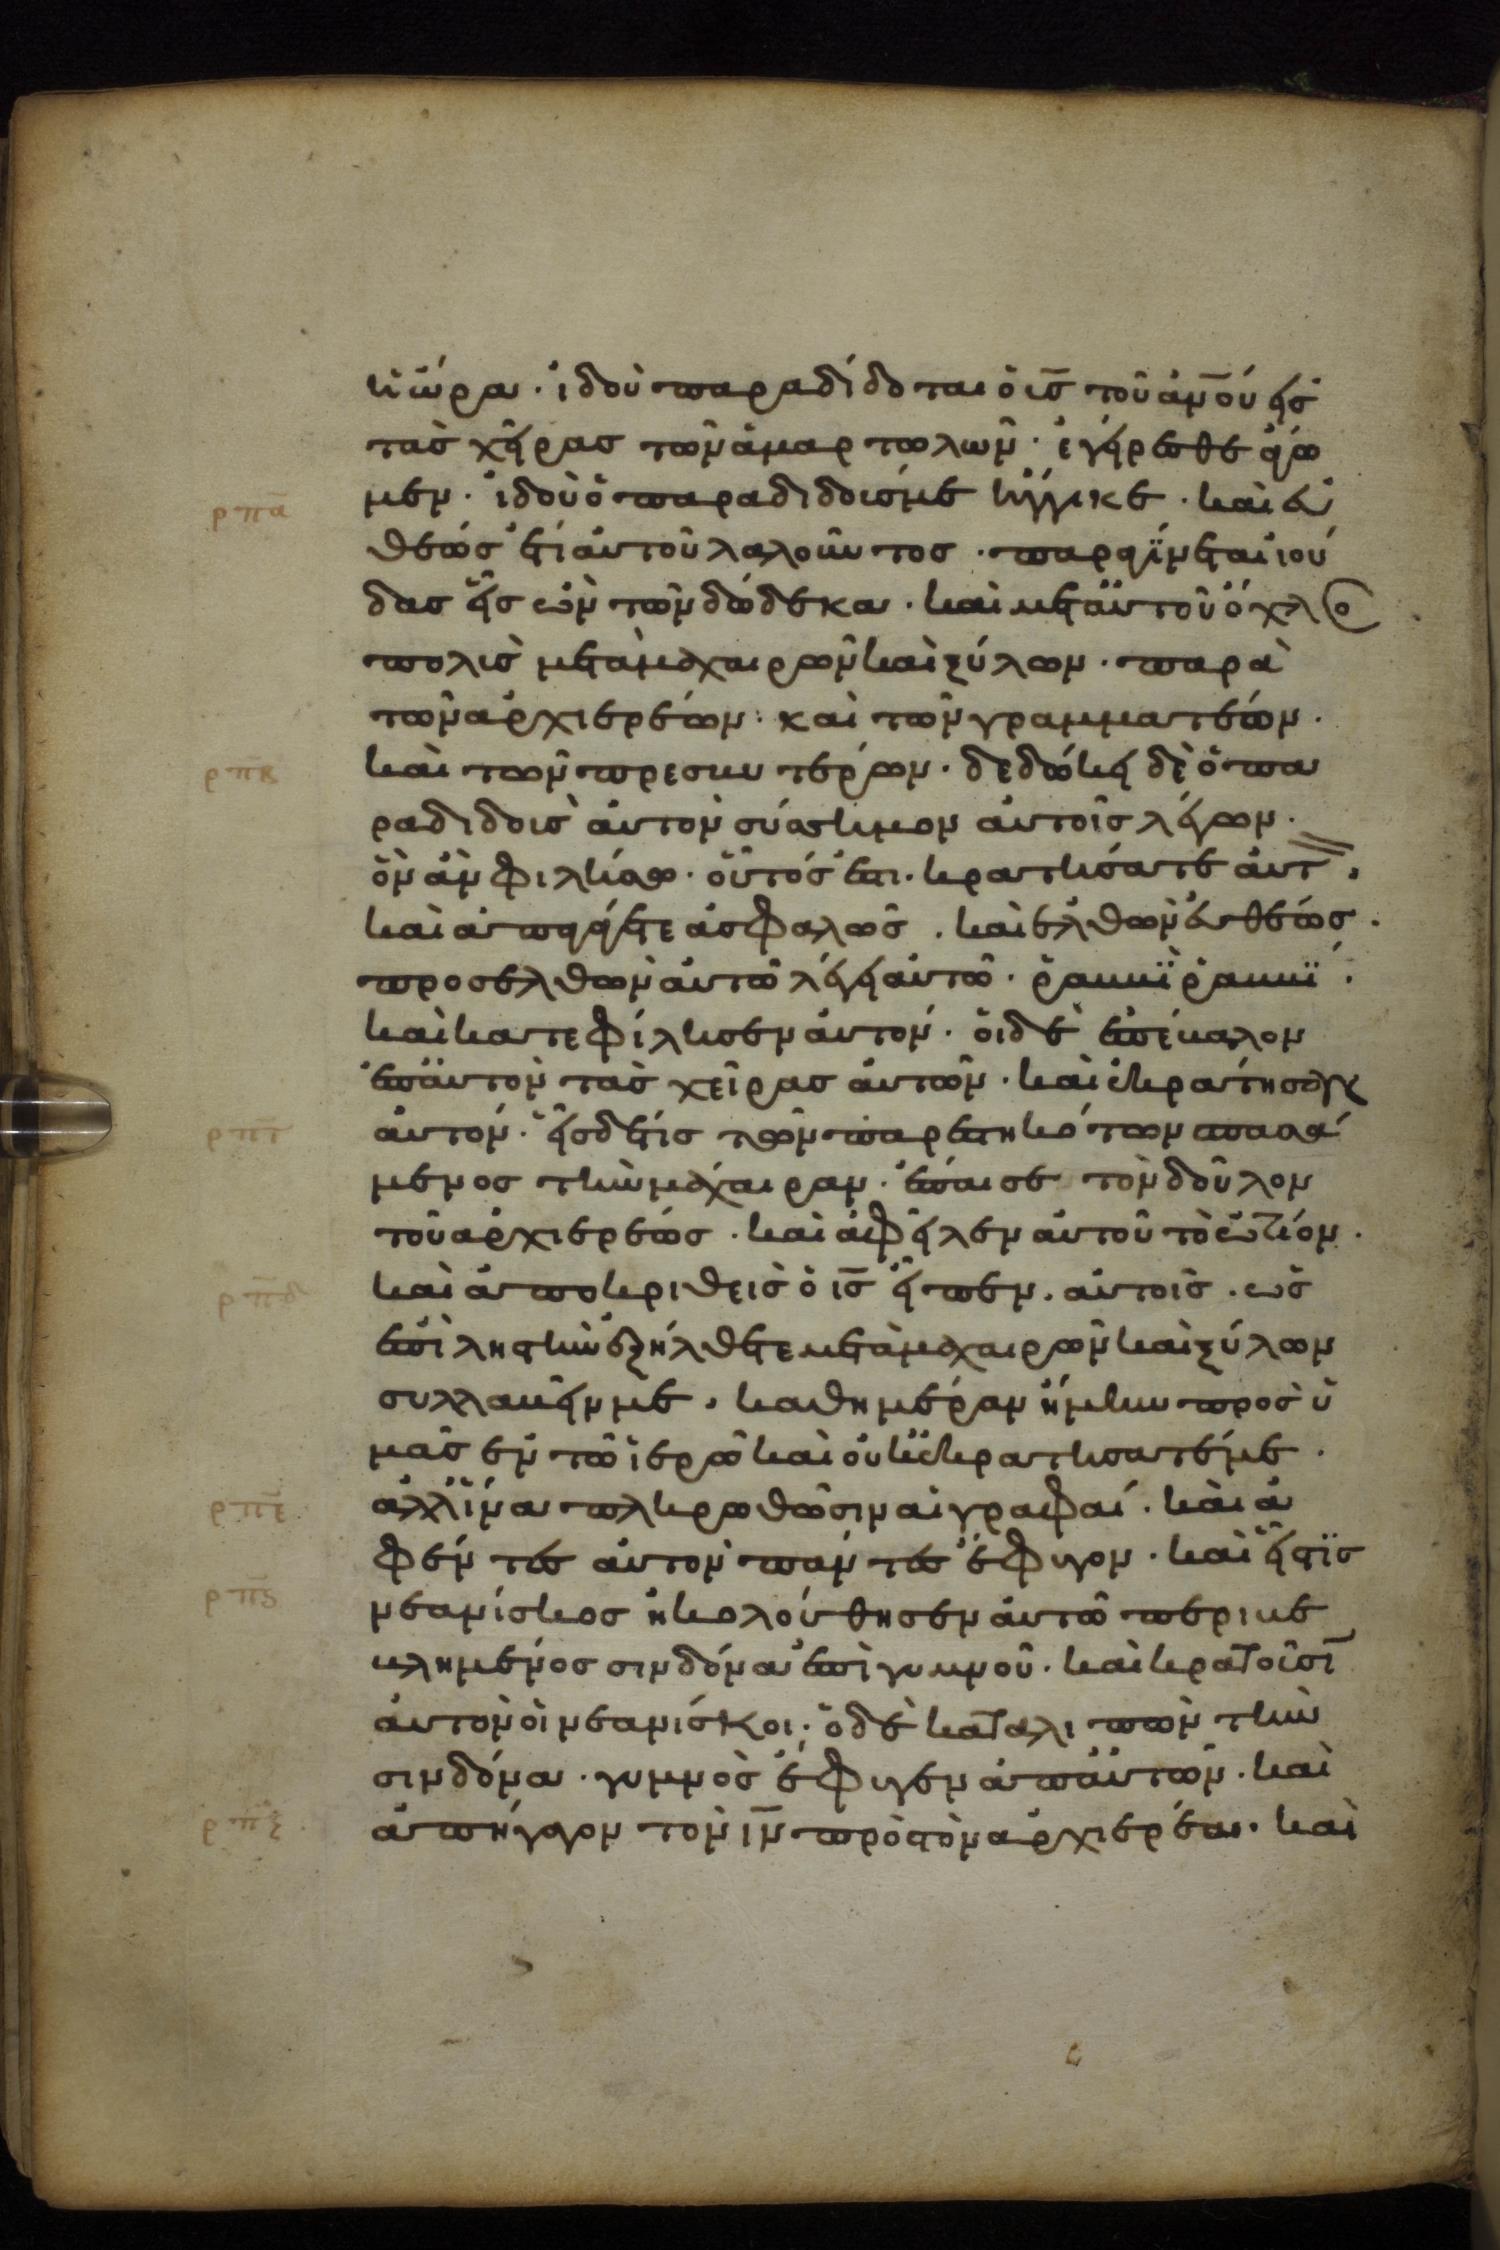 ἡ ὥρα· ἰδοὺ παραδίδοται ὁ ι̅ς̅ τοῦ ἀν̅ου εἰς
τὰς χεῖρας τῶν ἁμαρτωλῶν· ἐγείρεσθε ἄγω
ρπα μεν· ἰδοὺ ὁ παραδιδούς με ἤγγικε· καὶ εὐ
θέως ἔτι αὐτοῦ λαλοῦντος· παραγίνεται ἰού
δας εἷς ὢν τῶν δώδεκα· καὶ μετ αὐτοῦ ὄχλο
πολὺς μετὰ μαχαιρῶν καὶ ξύλων· παρὰ
τῶν ἀρχιερέων· καὶ τῶν γραμματέων·
ρπβ καὶ τῶν πρεσβυτέρων· δεδώκει δὲ ὁ πα
ραδιδοὺς αὐτὸν σύσσημον αὐτοῖς λέγων·
ὃν ἂν φιλήσω· οὗτός ἐστι· κρατήσατε αὐτ
καὶ ἀπαγάγετε ἀσφαλῶς· καὶ ἐλθὼν εὐθέως·
προσελθὼν αὐτῶ λέγει αὐτῶ· ῥαββὶ ῥαββί·
καὶ κατεφίλησεν αὐτόν· οἱ δὲ ἐπέβαλον
ἐπ αὐτὸν τὰς χεῖρας αὐτῶν· καὶ ἐκράτησαν
ρπγ αὐτόν· εἷς δέ τις τῶν παρεστηκότων σπασά
μενος τὴν μάχαιραν· ἔπαισε τὸν δοῦλον
τοῦ ἀρχιερέως· καὶ ἀφεῖλεν αὐτοῦ τὸ ὠτίον·
ρπδ καὶ ἀποκριθεὶς ὁ ι̅ς̅ εἶπεν· αὐτοῖς· ὡς
ἐπὶ ληστὴν ἐξήλθετε μετὰ μαχαιρῶν καὶ ξύλων
συλλαβεῖν με· καθημέραν ἤμην πρὸς ὑ
μᾶς ἐν τῶ ἱερῶ καὶ οὐκ ἐκρατήσατέ με·
ρπε ἀλλ ἵνα πληρωθῶσιν αἱ γραφαί· καὶ ἀ
φέντες αὐτὸν πάντες ἔφυγον· καὶ εἷς τὶς
ρπϛ νεανίσκος ἠκολούθησεν αὐτῶ περιβε
βλημένος σινδόνα ἐπὶ γυμνοῦ· καὶ κρατοῦσι
αὐτὸν οἱ νεανίσκοι· ὁ δὲ καταλιπὼν τὴν
σινδόνα· γυμνὸς ἔφυγεν ἀπ αὐτῶν· καὶ
ρπζ ἀπήγαγον τὸν ι̅ν̅ πρὸς τὸν ἀρχιερέα· καὶ